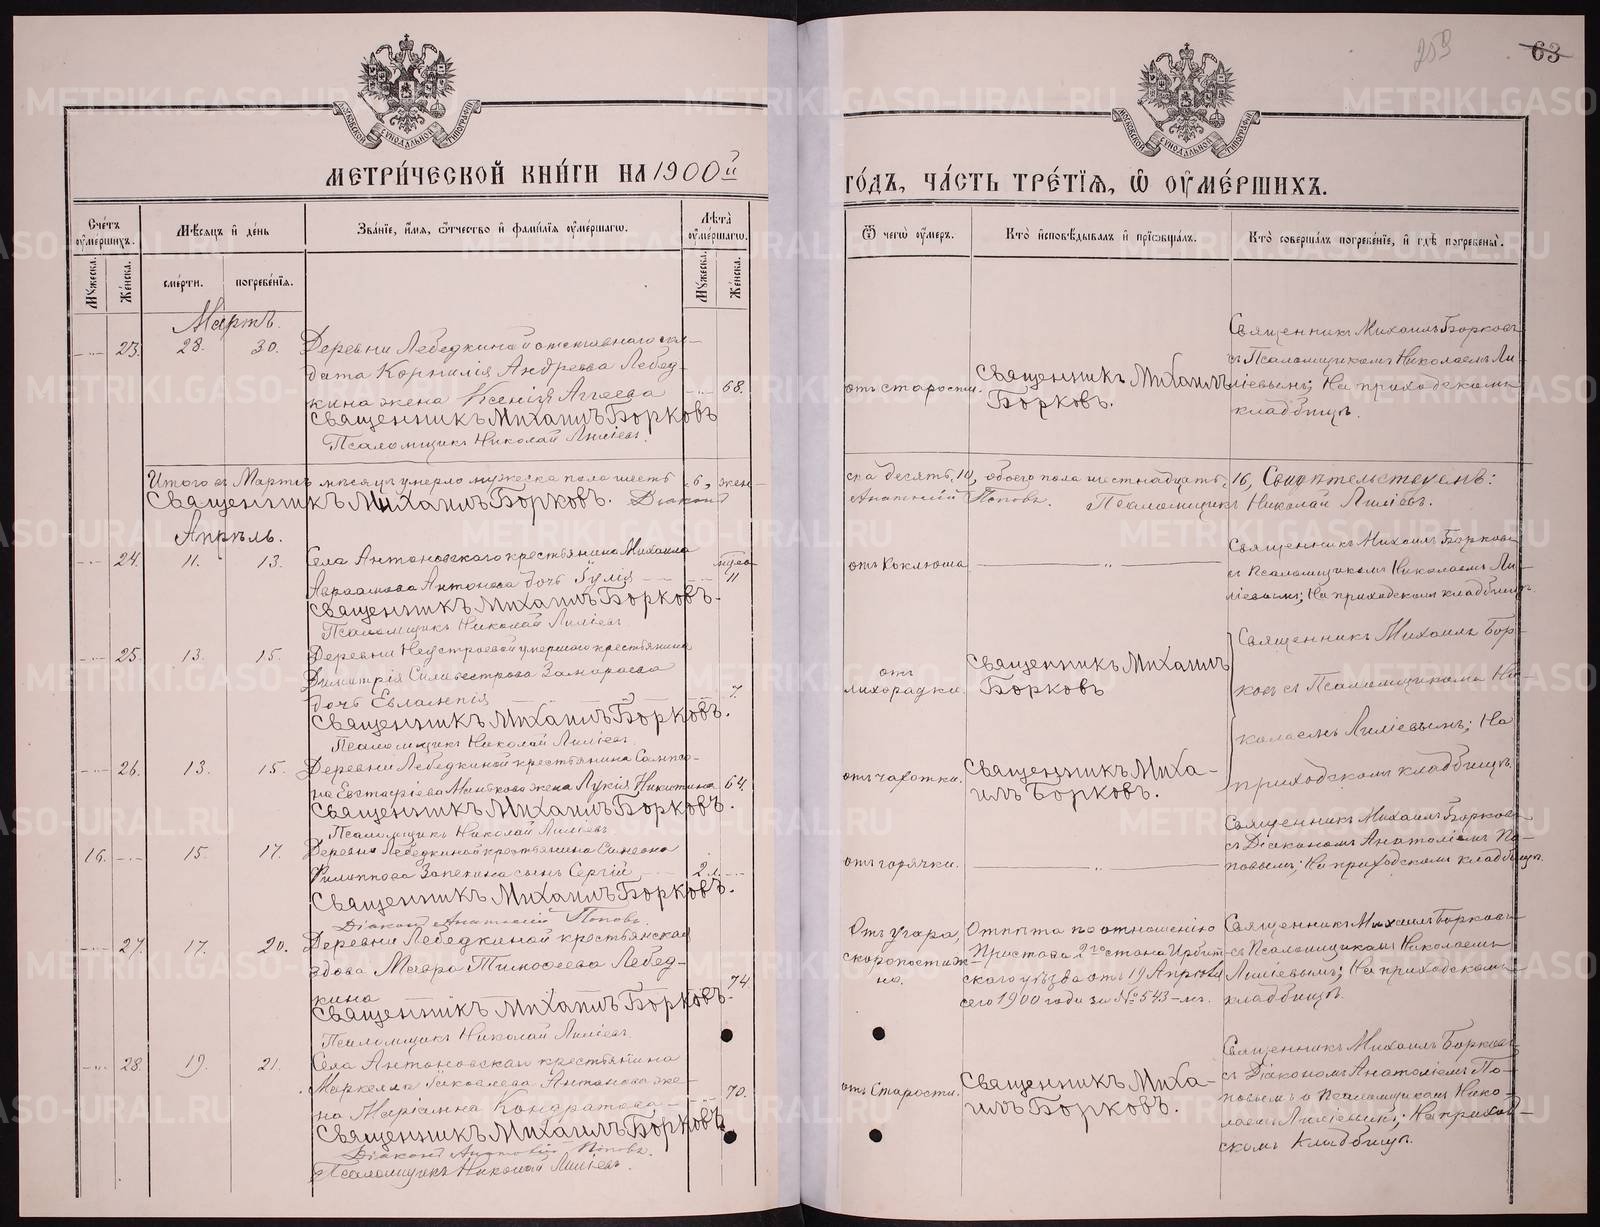 253
63
МОСКОВСКОЙ СѴНОДАЛЬНОЙ ТИПОГРАФІИ
МОСКОВСКОЙ СѴНОДАЛЬНОЙ ТИПОГРАФІИ
МЕТРИ́ЧЕСКОЙ КНИ́ГИ НА 1900й
ГО́ДЪ, ЧА́СТЬ ТРЕ́ТІѦ, Ѿ ОУ҆МЕ́РШИХЪ.
Сче́тъ оу҆ме́ршихъ.
Мѣ́сѧцъ и҆ де́нь
Зва́нїе, и҆́мѧ, ѻ҆́тчество и҆ фами́лїѧ оу҆ме́ршагѡ.
Лѣ́та оу҆ме́ршагѡ.
Ѿ чегѡ̀ оу҆́меръ.
Кто̀ и҆сповѣ́дывалъ и҆ прїѡбща́лъ.
Кто̀ соверша́лъ погребе́нїе, и҆ гдѣ̀ погребены̀.
Мꙋ́жеска.
Же́нска.
сме́рти.
погребе́нїѧ.
Мꙋ́жеска.
Же́нска.
Мартъ.
23. 28. 30. Деревни Лебедкиной отставного сол-
дата Корнилія Андреева Лебед-
кина жена Ксенія Аггеева 68.
Священникъ Михаилъ Борковъ
Псаломщикъ Николай Лиліевъ.
отъ старости.
Священникъ Михаилъ
Борковъ.
Священникъ Михаилъ Борковъ
съ Псаломщикомъ Николаемъ Ли-
ліевымъ; На приходскомъ
кладбищѣ.
Итого въ Мартѣ мѣсяцѣ умерло мужеска пола шесть 6, жен-
ска десять, 10, обоего пола шестнадцать, 16,
Священникъ Михаилъ Борковъ. Діаконъ
Анатолій Поповъ. Псаломщикъ Николай Лиліевъ.
Апрѣль.
24. 11. 13. Села Антоновскаго крестьянина Михаила
Авраамова Антонова дочь Іулія 11
Священникъ Михаилъ Борковъ.
Псаломщикъ Николай Лиліевъ
отъ Коклюша
Священникъ Михаилъ Борковъ
съ Псаломщикомъ Николаемъ Ли-
ліевымъ; На приходскомъ кладбищѣ.
25. 13. 15. Деревни Неустроевой умершаго крестьянина
Димитрія Сильвестрова Замараева
дочь Евлампія 7.
Священникъ Михаилъ Борковъ.
Псаломщикъ Николай Лиліевъ.
отъ
лихорадки.
Священникъ Михаилъ
Борковъ
Священникъ Михаилъ Бор-
ковъ съ Псаломщикомъ Ни-
колаемъ Лиліевымъ; На
приходскомъ кладбищѣ.
26. 13. 15. Деревни Лебедкиной крестьянина Сампсо-
на Евстафіева жена Лукія Никитина 64.
Священникъ Михаилъ Борковъ.
Псаломщикъ Николай Лиліевъ
отъ чахотки.
Священникъ Миха-
илъ Борковъ.
16. 15. 17. Деревни Лебедкиной крестьянина Симеона
Филиппова Запекина сынъ Сергій 2 л.
Священникъ Михаилъ Борковъ.
Діаконъ Анатолій Поповъ.
отъ горячки.
Священникъ Михаилъ Борковъ
съ Діакономъ Анатоліемъ По-
повымъ; На приходскомъ кладбищѣ.
27. 17. 20. Деревни Лебедкиной крестьянская
вдова Мавра Тимофеева Лебед-
кина 74.
Священникъ Михаилъ Борковъ.
Псаломщикъ Николай Лиліевъ.
Отъ угара,
скоропостиж-
но.
Отпѣта по отношенію
Пристава 2го стана Ирбит-
скаго уѣзда отъ 19 Апрѣля
сего 1900 года за № 543-мъ.
Священникъ Михаилъ Борковъ
съ Псаломщикомъ Николаемъ
Лиліевымъ; На приходскомъ
кладбищѣ.
28. 19. 21. Села Антоновскаго крестьянина
Маркелла Іаковлева Антонова же-
на Маріамна Кондратова 70.
Священникъ Михаилъ Борковъ
Діаконъ Анатолій Поповъ.
Псаломщикъ Николай Лиліевъ.
отъ Старости.
Священникъ Миха-
илъ Борковъ.
Священникъ Михаилъ Борковъ
съ Діакономъ Анатоліемъ По-
повымъ и Псаломщикомъ Нико-
лаемъ Лиліевымъ; На приход-
скомъ Кладбищѣ.
METRIKI.GASO-URAL.RU